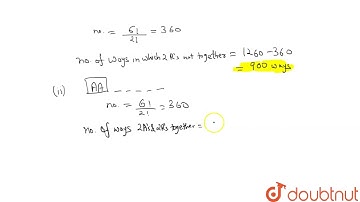 no. = 6!/2! = 360
no. of ways in which 2 R's not together = 1260 - 360
= 900 ways
(ii) AA _ _ _ _ _
no. = 6!/2! = 360
no. of ways 2A's & 2R's together =
doubtnut